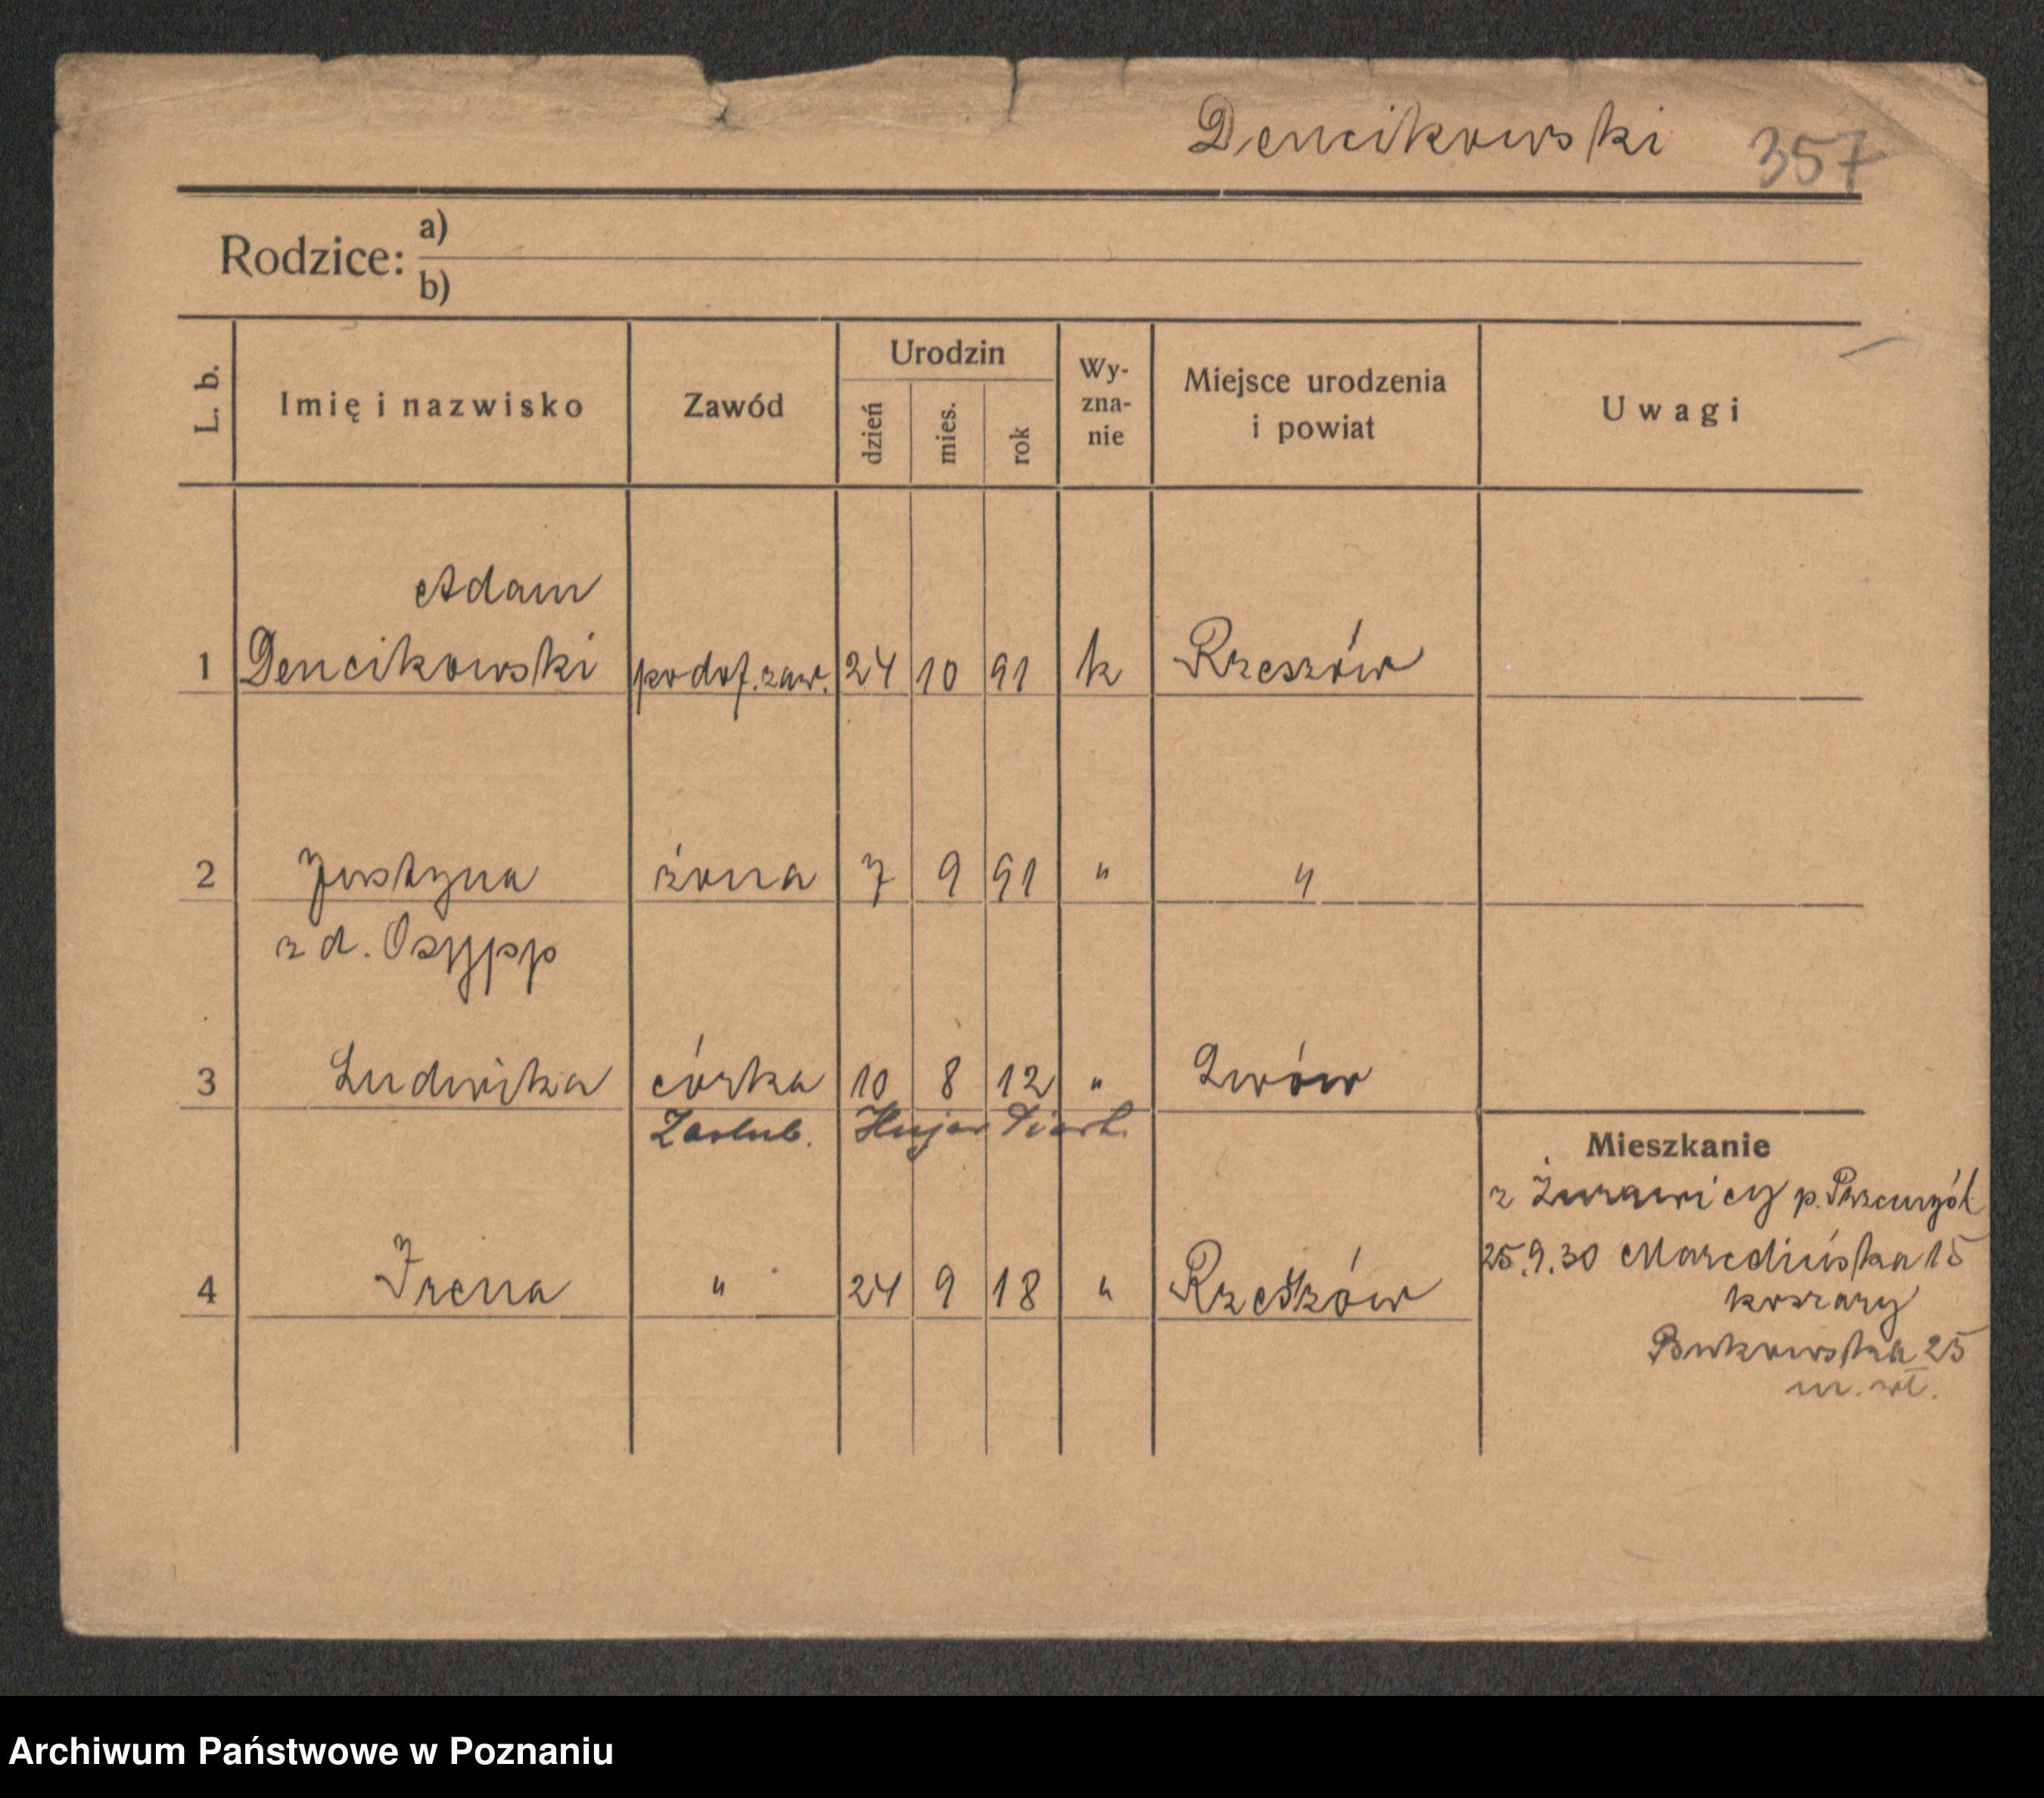 Dencikowski 357
Rodzice: a)
b)
L. b. Imię i nazwisko Zawód Urodzin dzień mies. rok Wy-zna-nie Miejsce urodzenia i powiat Uwagi
Adam
1 Dencikowski podof. zaw. 24 10 91 k Rzeszów
2 Justyna żona 7 9 91 " "
z d. Osypp
3 Ludwika córka 10 8 12 " Lwów
Zaślub. Hujar
Mieszkanie
z Żurawicy p. Przemyśl
25.9.30 Marcelińska 15
4 Irena " 24 9 18 " Rzeszów
koszary
Bukowska 25
m. wł.
Archiwum Państwowe w Poznaniu